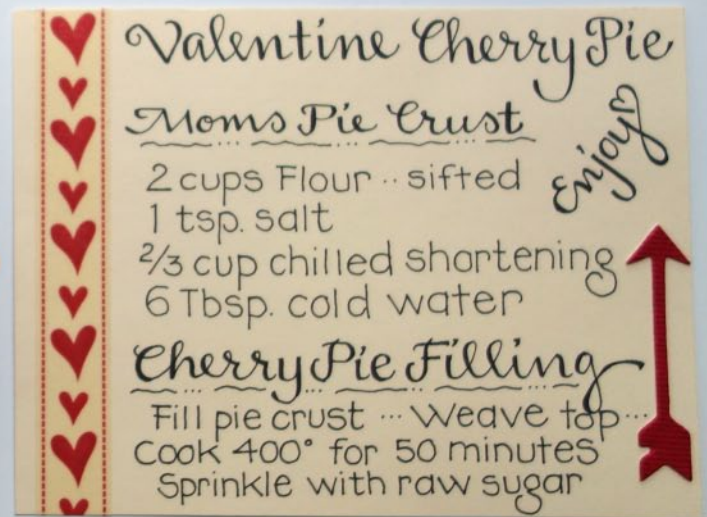 Valentine Cherry Pie
Enjoy
Moms Pie Crust
2 cups Flour .. sifted
1 tsp. salt
2/3 cup chilled shortening
6 Tbsp. cold water
Cherry Pie Filling
Fill pie crust ... Weave top ...
Cook 400° for 50 minutes
Sprinkle with raw sugar